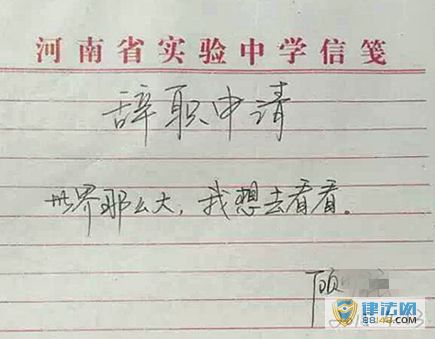 河南省实验中学信笺
辞职申请
世界那么大，我想去看看。
顾
律法网